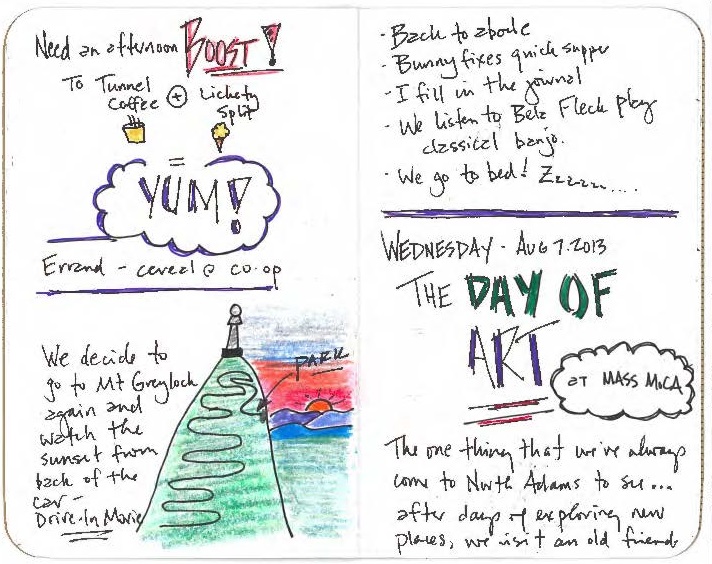 Need an afternoon BOOST!
To Tunnel Coffee + Lickety Split
=
YUM!
Errand - cereal @ co-op
We decide to
go to Mt Greylock
again and
watch the
sunset from
back of the
car -
Drive-In Movie
PARK
· Back to abode
· Bunny fixes quick supper
· I fill in the journal
· We listen to Bela Fleck play
classical banjo.
· We go to bed! Zzzzzz....
WEDNESDAY - AUG 7.2013
THE DAY OF
ART
AT MASS MoCA
The one thing that we've always
come to North Adams to see...
after days of exploring new
places, we visit an old friend